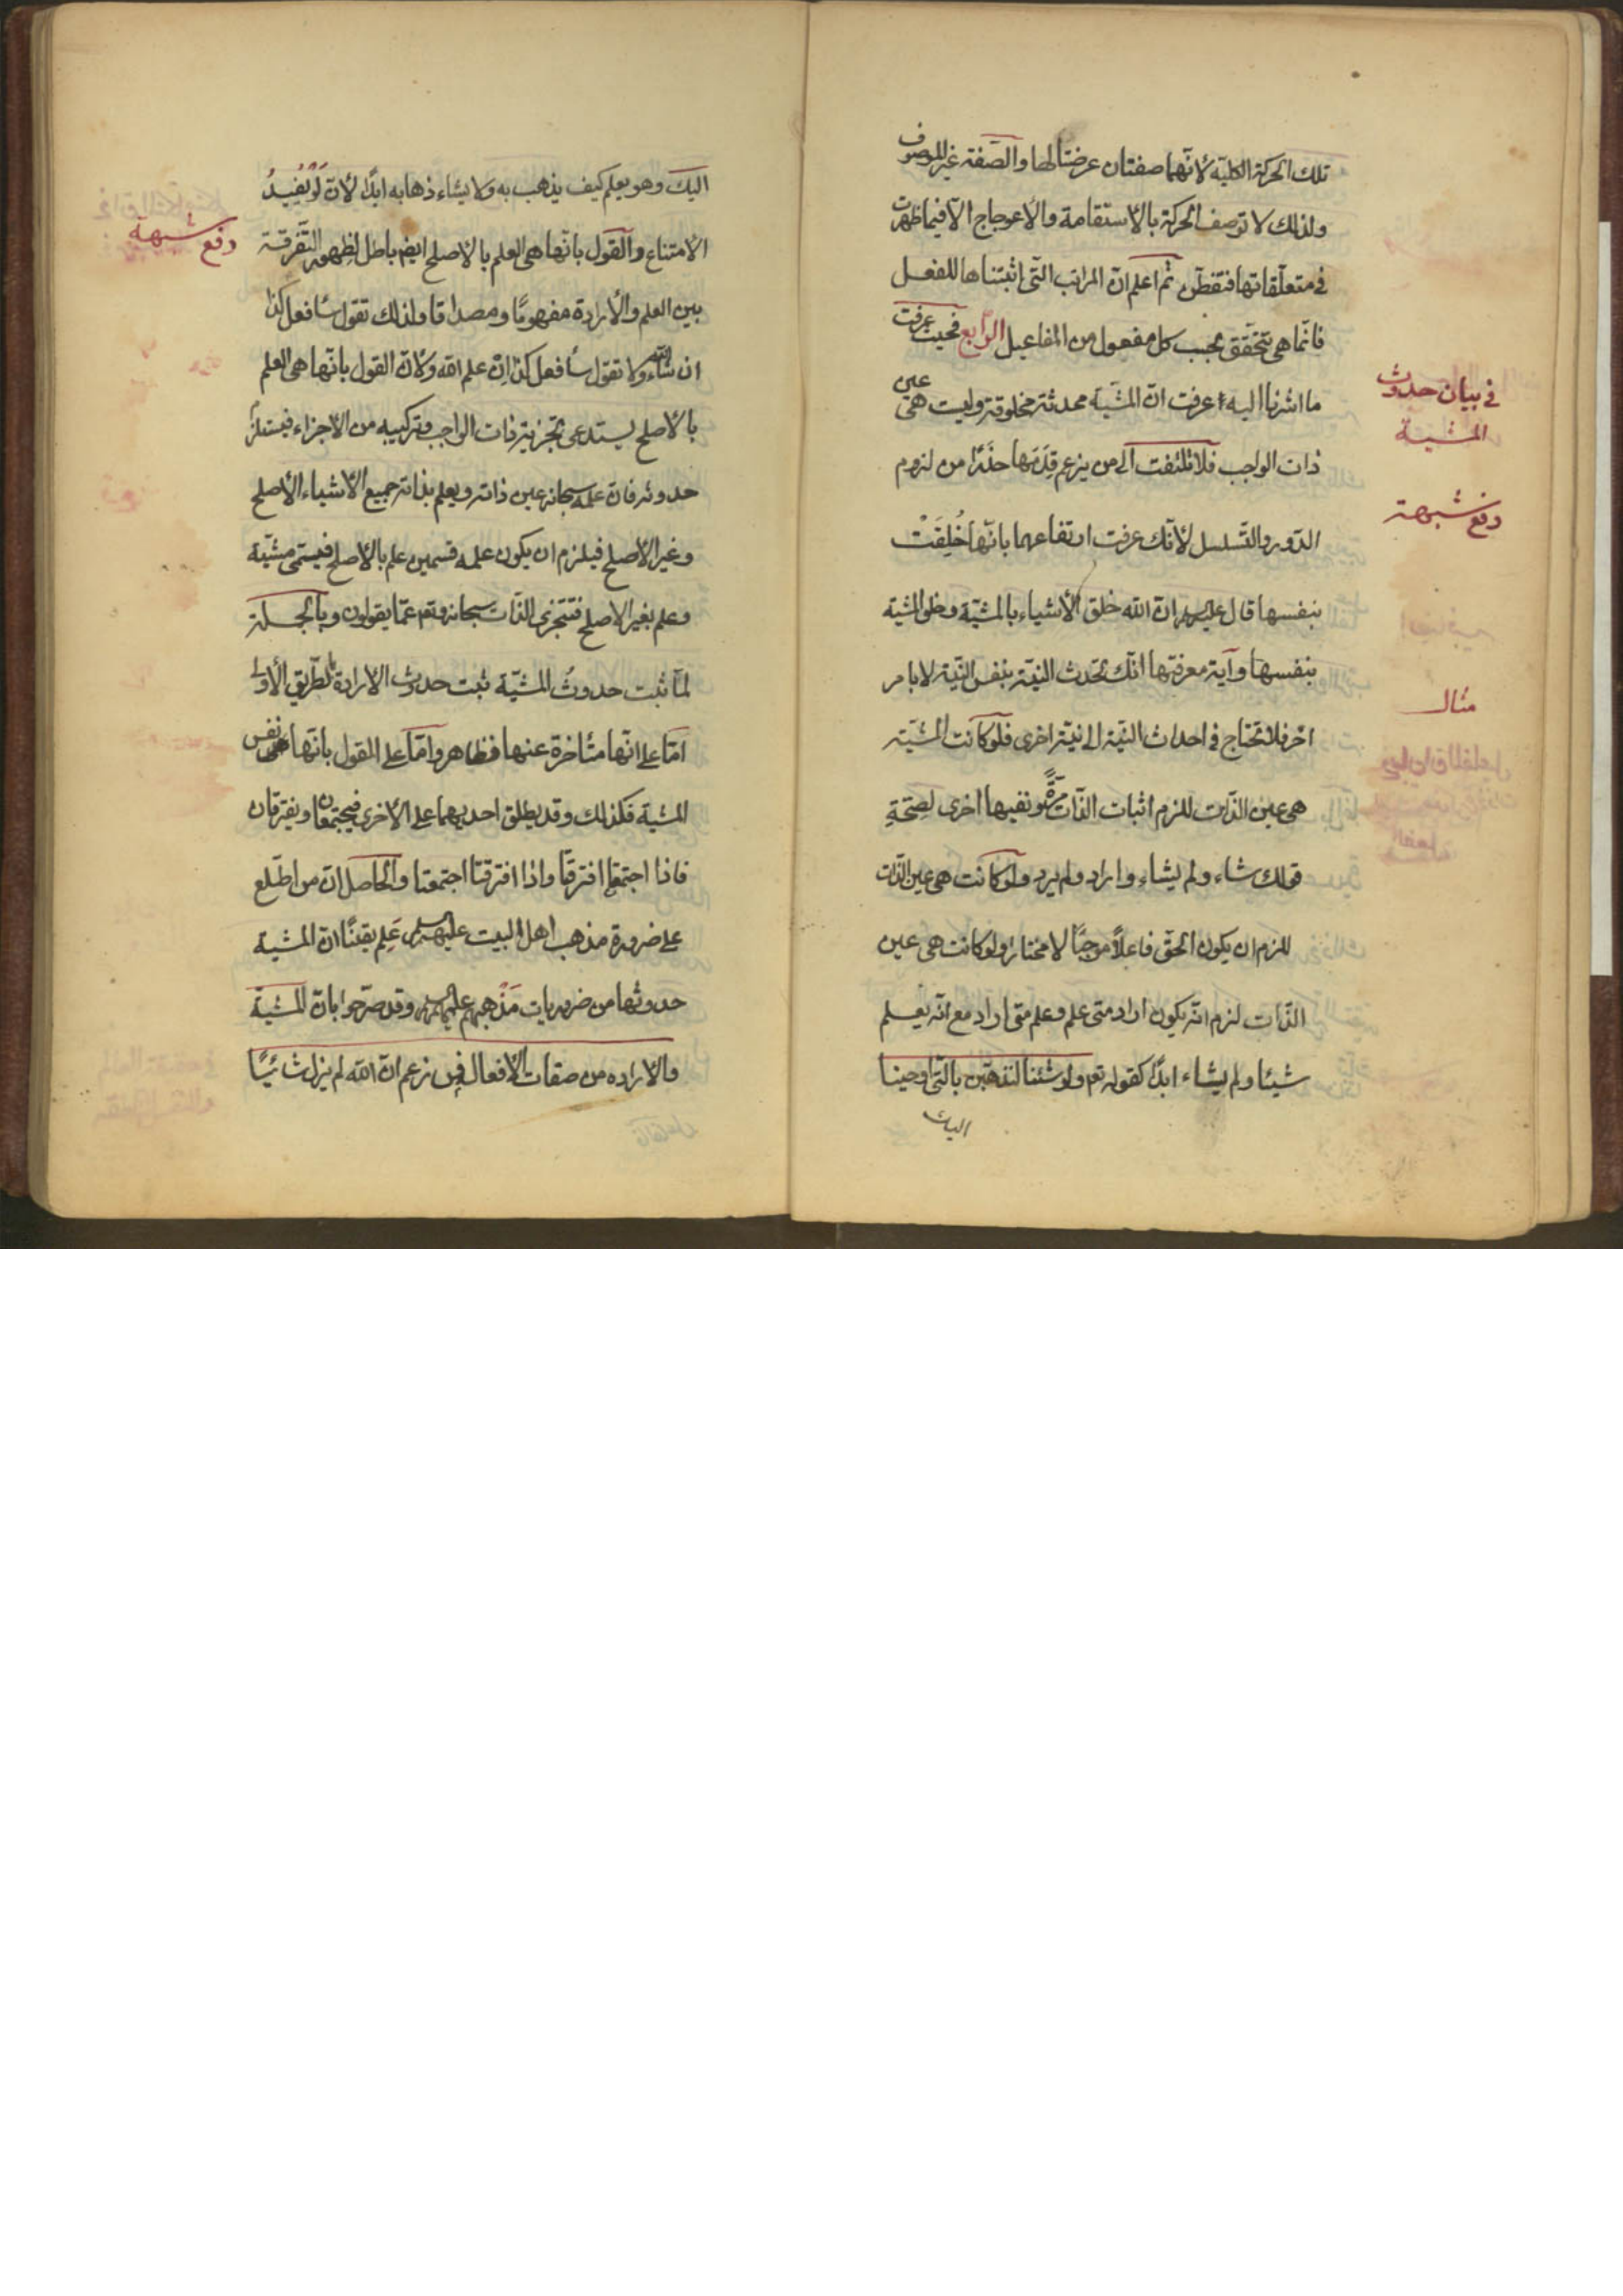 تلك الحركة الكلية لأنّهما صفتان عرضتا لها والصّفة غير الموصوف
ولذلك لا توصف الحركة بالأستقامة والأعوجاج الّا فيما ظهرت
في متعلّقاتها فتفطّن ثم اعلم انّ المراتب الّتي اثبتناها للفعل
فانّما هي تتحقّق بحسب كل مفعول من المفاعيل الرّابع فحيث عرفت
ما اشرنا اليه عرفت انّ المشيّة محدثة مخلوقة وليست هي عين
ذات الواجب فلا تلتفت الى من يزعم قِدَمَها حذرًا من لزوم
الدّور والتّسلسل لأنّك عرفت ارتفاعهما بانّها خُلِقَتْ
بنفسها قال عليه السلام انّ الله خلق الأشياء بالمشيّة وخلق المشية
بنفسها وآية معرفتها انّك تحدث النيّة بنفس النّية لا بامر
اخر فلا تحتاج في احداث النيّة الى نيّة اخرى فلو كانت المشيّة
هي عين الذّات للزم اثبات الذّات مرّةً ونفيها اخرى لصِحّةِ
قولك شاء ولم يشاء واراد ولم يرد ولو كانت هي عين الذّات
للزم ان يكون الحقّ فاعلاً موجبًا لا مختارا ولو كانت هي عين
الذّات لزم انّه يكون اراد متى علم وعلم متى اراد مع انّه يعلم
شيئا ولم يشاء ابدًا كقوله تعم ولو شئنا لنذهبّن بالّذي اوحينا
اليك
في بيان حدوث
المشية
دفع شبهة
مثال
اليك وهو يعلم كيف يذهب به ولا يشاء ذهابه ابدًا لأنّ لَوْ يُفيدُ
الأمتناع والقول بانّها هي العلم بالأصلح ايضم باطل لظهور التّفرقة
بين العلم والأرادة مفهومًا ومصداقا ولذلك تقول سأفعل كذا
ان شاء الله ولا تقول سأفعل كذا ان علم الله ولأنّ القول بانّها هي العلم
بالأصلح يستدعي تجزية ذات الواجب وتركيبه من الأجزاء فيستلزم
حدوثه فانّ علمه سبحانه عين ذاته ويعلم بذاته جميع الأشياء الأصلح
وغير الأصلح فيلزم ان يكون علمه قسمين علم بالأصلح فيسمّى مشيّة
وعلم بغير الاصلح فتتجزى الذّات سبحانه وتعم عمّا يقولون وبالجملة
لمّا ثبت حدوثُ المشيّة ثبت حدوث الأرادة بالطّريق الأولى
امّا على انّها متأخرة عنها فظاهر وامّا على القول بانّها هي نفس
المشية فكذلك وقد يطلق احديهما على الأخرى فيجتمعان ويفترقان
فاذا اجتمعتا افترقتا واذا افترقتا اجتمعتا والحاصل انّ من اطّلع
على ضرورة مذهب اهل البيت عليهم السلام عَلِم يقينًا انّ المشية
حدوثها من ضروريات مَذْهبهم عليهم السلام وقد صرّحوا بانّ المشيّة
والاراده من صفات الأفعال فمن زعم انّ الله لم يزل شائيًا
دفع شبهة